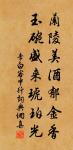 蘭陵美酒郁金香
玉碗盛來琥珀光
李白客中行詞典網書